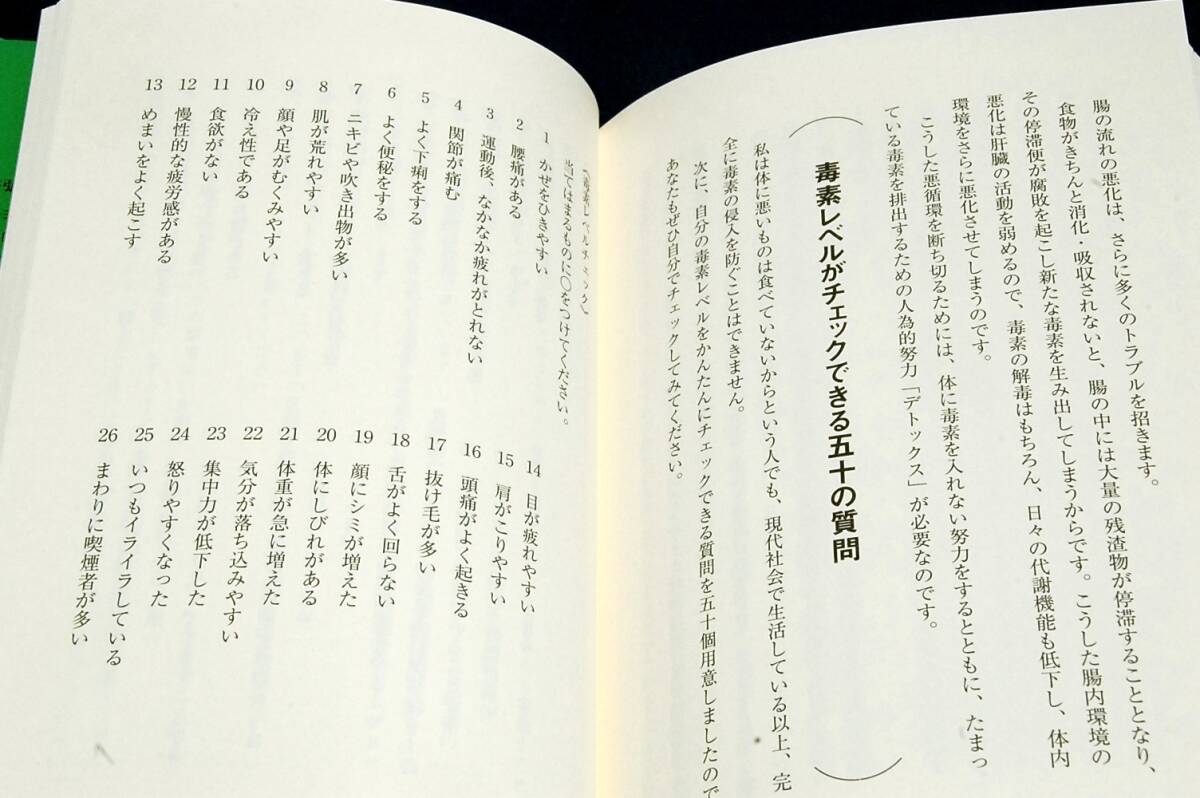 腸の流れの悪化は、さらに多くのトラブルを招きます。
食物がきちんと消化・吸収されないと、腸の中には大量の残渣物が停滞することとなり、
その停滞便が腐敗を起こし新たな毒素を生み出してしまうからです。こうした腸内環境の
悪化は肝臓の活動を弱めるので、毒素の解毒はもちろん、日々の代謝機能も低下し、体内
環境をさらに悪化させてしまうのです。
こうした悪循環を断ち切るためには、体に毒素を入れない努力をするとともに、たまっ
ている毒素を排出するための人為的努力「デトックス」が必要なのです。
毒素レベルがチェックできる五十の質問
私は体に悪いものは食べていないからという人でも、現代社会で生活している以上、完
全に毒素の侵入を防ぐことはできません。
次に、自分の毒素レベルをかんたんにチェックできる質問を五十個用意しましたので
あなたもぜひ自分でチェックしてみてください。
当てはまるものに○をつけてください。
1 かぜをひきやすい
2 腰痛がある
3 運動後、なかなか疲れがとれない
4 関節が痛む
5 よく下痢をする
6 よく便秘をする
7 ニキビや吹き出物が多い
8 肌が荒れやすい
9 顔や足がむくみやすい
10 冷え性である
11 食欲がない
12 慢性的な疲労感がある
13 めまいをよく起こす
14 目が疲れやすい
15 肩がこりやすい
16 頭痛がよく起きる
17 抜け毛が多い
18 舌がよく回らない
19 顔にシミが増えた
20 体にしびれがある
21 体重が急に増えた
22 気分が落ち込みやすい
23 集中力が低下した
24 怒りやすくなった
25 いつもイライラしている
26 まわりに喫煙者が多い